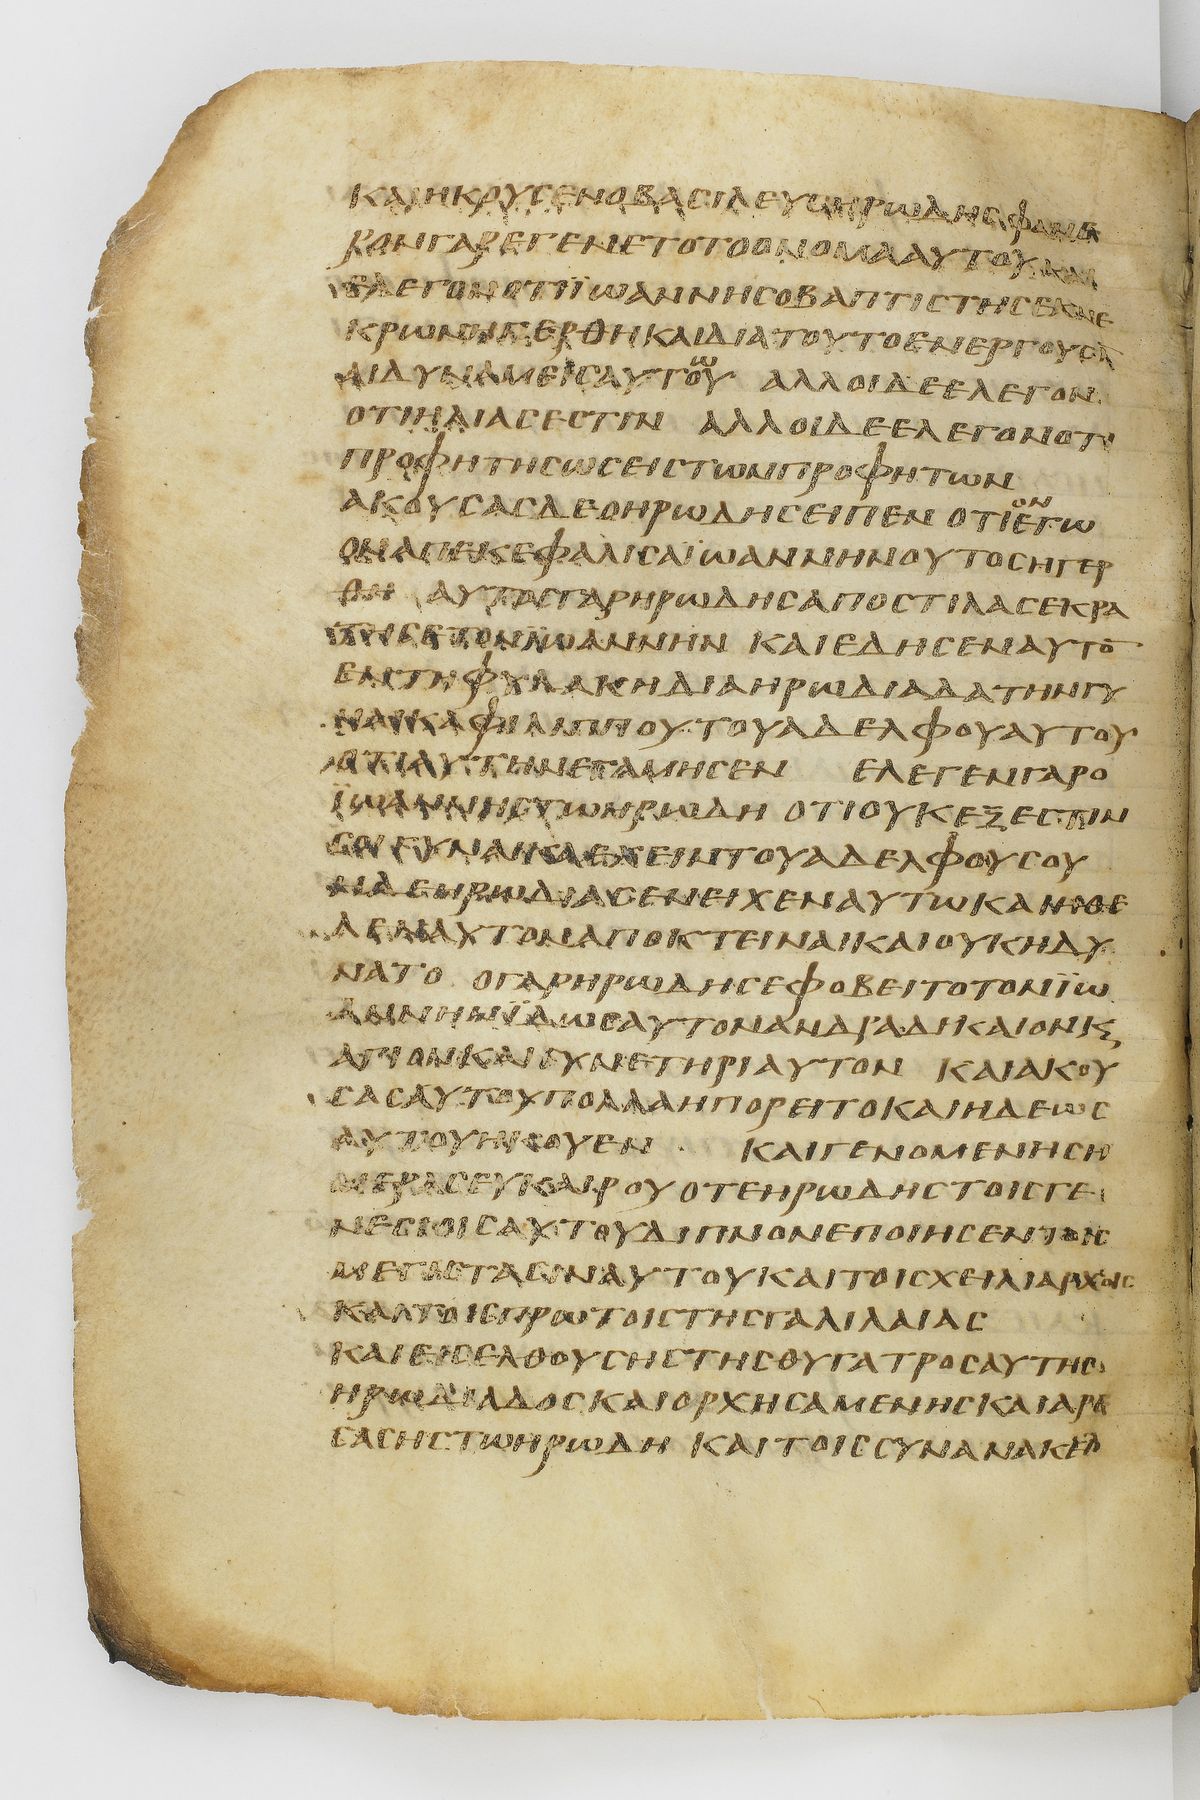 ΚΑΙΗΚΟΥΣΕΝΟΒΑΣΙΛΕΥΣΗΡΩΔΗΣΦΑΝΕ
ΡΟΝΓΑΡΕΓΕΝΕΤΟΤΟΟΝΟΜΑΑΥΤΟΥΚΑΙ
ΕΛΕΓΟΝΟΤΙΪΩΑΝΝΗΣΟΒΑΠΤΙΣΤΗΣΕΚΝΕ
ΚΡΩΝΗΓΕΡΘΗΚΑΙΔΙΑΤΟΥΤΟΕΝΕΡΓΟΥΣΙ
ΑΙΔΥΝΑΜΕΙΣΑΥΤΟΥ ΑΛΛΟΙΔΕΕΛΕΓΟΝ
ΟΤΙΗΛΙΑΣΕΣΤΙΝ ΑΛΛΟΙΔΕΕΛΕΓΟΝΟΤΙ
ΠΡΟΦΗΤΗΣΩΣΕΙΣΤΩΝΠΡΟΦΗΤΩΝ
ΑΚΟΥΣΑΣΔΕΟΗΡΩΔΗΣΕΙΠΕΝ ΟΤΙΟΝΕΓΩ
ΟΝΑΠΕΚΕΦΑΛΙΣΑΪΩΑΝΝΗΝΟΥΤΟΣΗΓΕΡ
ΘΗ ΑΥΤΟΣΓΑΡΗΡΩΔΗΣΑΠΟΣΤΙΛΑΣΕΚΡΑ
ΤΗΣΕΤΟΝΪΩΑΝΝΗΝ ΚΑΙΕΔΗΣΕΝΑΥΤΟ
ΕΝΤΗΦΥΛΑΚΗΔΙΑΗΡΩΔΙΑΔΑΤΗΝΓΥ
ΝΑΙΚΑΦΙΛΙΠΠΟΥΤΟΥΑΔΕΛΦΟΥΑΥΤΟΥ
ΟΤΙΑΥΤΗΝΕΓΑΜΗΣΕΝ ΕΛΕΓΕΝΓΑΡΟ
ΪΩΑΝΝΗΣΤΩΗΡΩΔΗ ΟΤΙΟΥΚΕΞΕΣΤΙΝ
ΣΟΙΓΥΝΑΙΚΑΕΧΕΙΝΤΟΥΑΔΕΛΦΟΥΣΟΥ
ΗΔΕΗΡΩΔΙΑΣΕΝΕΙΧΕΝΑΥΤΩΚΑΙΗΘΕ
ΛΕΝΑΥΤΟΝΑΠΟΚΤΕΙΝΑΙΚΑΙΟΥΚΗΔΥ
ΝΑΤΟ ΟΓΑΡΗΡΩΔΗΣΕΦΟΒΕΙΤΟΤΟΝΪΩ
ΑΝΝΗΝΪΔΩΣΑΥΤΟΝΑΝΔΡΑΔΙΚΑΙΟΝΚ
ΑΓΙΟΝΚΑΙΣΥΝΕΤΗΡΙΑΥΤΟΝ ΚΑΙΑΚΟΥ
ΣΑΣΑΥΤΟΥΠΟΛΛΑΗΠΟΡΕΙΤΟΚΑΙΗΔΕΩΣ
ΑΥΤΟΥΗΚΟΥΕΝ ΚΑΙΓΕΝΟΜΕΝΗΣΗ
ΜΕΡΑΣΕΥΚΑΙΡΟΥΟΤΕΗΡΩΔΗΣΤΟΙΣΓΕ
ΝΕΣΙΟΙΣΑΥΤΟΥΔΙΠΝΟΝΕΠΟΙΗΣΕΝΤΟΙΣ
ΜΕΓΙΣΤΑΣΙΝΑΥΤΟΥΚΑΙΤΟΙΣΧΕΙΛΙΑΡΧΟΙΣ
ΚΑΙΤΟΙΣΠΡΩΤΟΙΣΤΗΣΓΑΛΙΛΑΙΑΣ
ΚΑΙΕΙΣΕΛΘΟΥΣΗΣΤΗΣΘΥΓΑΤΡΟΣΑΥΤΗΣ
ΗΡΩΔΙΑΔΟΣΚΑΙΟΡΧΗΣΑΜΕΝΗΣΚΑΙΑΡΕ
ΣΑΣΗΣΤΩΗΡΩΔΗ ΚΑΙΤΟΙΣΣΥΝΑΝΑΚΕΙ